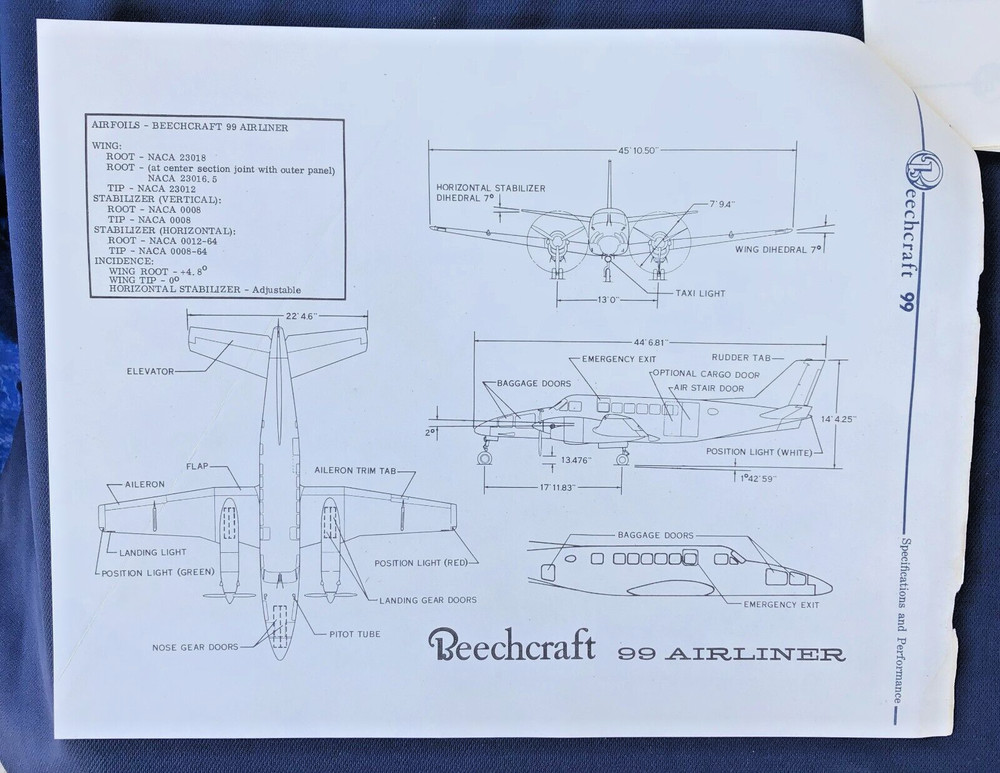 AIRFOILS - BEECHCRAFT 99 AIRLINER
WING:
ROOT - NACA 23018
ROOT - (at center section joint with outer panel)
NACA 23016.5
TIP - NACA 23012
STABILIZER (VERTICAL):
ROOT - NACA 0008
TIP - NACA 0008
STABILIZER (HORIZONTAL):
ROOT - NACA 0012-64
TIP - NACA 0008-64
INCIDENCE:
WING ROOT - +4.8°
WING TIP - 0°
HORIZONTAL STABILIZER - Adjustable
45' 10.50"
HORIZONTAL STABILIZER
DIHEDRAL 7°
7' 9.4"
WING DIHEDRAL 7°
TAXI LIGHT
13' 0"
22' 4.6"
ELEVATOR
FLAP
AILERON
AILERON TRIM TAB
LANDING LIGHT
POSITION LIGHT (GREEN)
POSITION LIGHT (RED)
LANDING GEAR DOORS
PITOT TUBE
NOSE GEAR DOORS
44' 6.81"
EMERGENCY EXIT
RUDDER TAB
OPTIONAL CARGO DOOR
BAGGAGE DOORS
AIR STAIR DOOR
14' 4.25"
2°
POSITION LIGHT (WHITE)
13.476"
17' 11.83"
1° 42' 59"
BAGGAGE DOORS
EMERGENCY EXIT
Beechcraft 99 AIRLINER
Beechcraft 99
Specifications and Performance